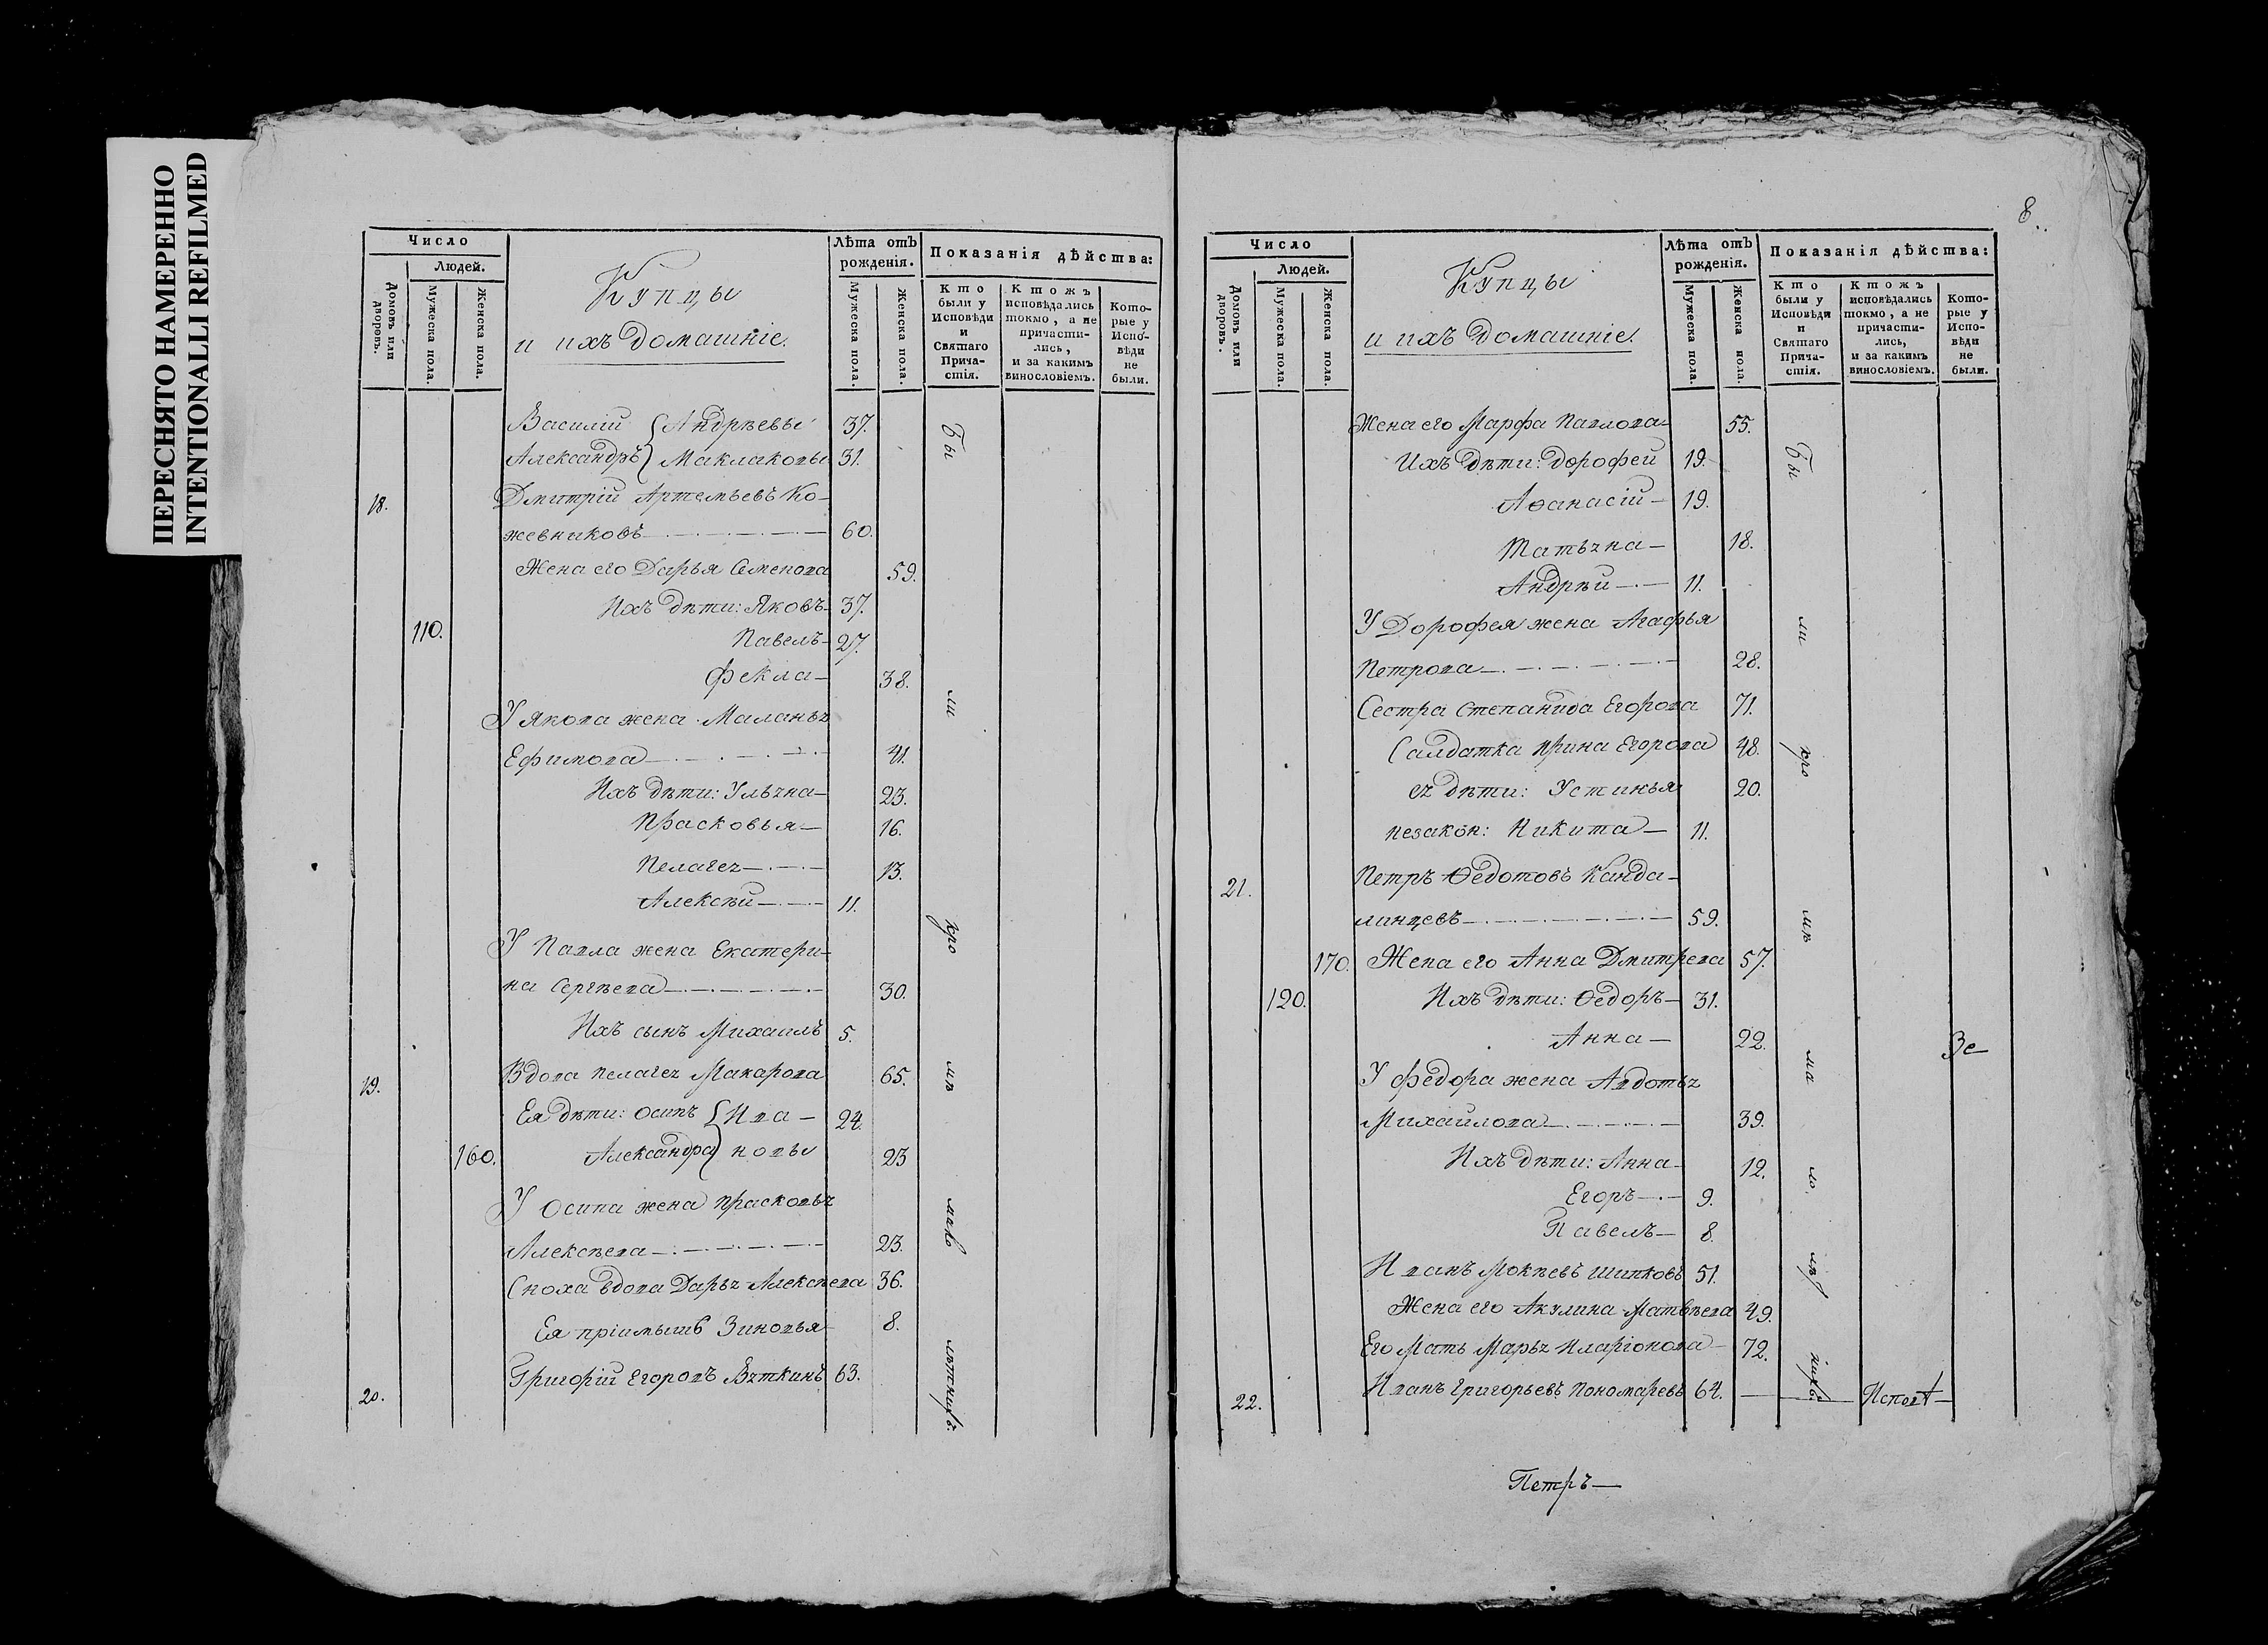 ПЕРЕСНЯТО НАМЕРЕННО
INTENTIONALLI REFILMED
Число
Людей.
Домовъ или дворовъ.
Мужеска пола.
Женска пола.
Купцы
и ихъ домашніе.
Лѣта отъ рожденія.
Мужеска пола.
Женска пола.
Показанія дѣйства:
Кто были у Исповѣди и Святаго Причастія.
Ктожъ исповѣдались токмо, а не причастились, и за какимъ винословіемъ.
Которые у Исповѣди не были.
Василій { Андрѣевы 37.
Александръ } Маклаковы 31.
18. Дмитрій Артемьевъ Ко-
жевниковъ 60.
Жена его Дарья Семенова 59.
Ихъ дѣти: Яковъ 37.
110. Павелъ 27.
Фекла 38.
У Якова жена Маланья
Ефимова 41.
Ихъ дѣти: Ульяна 23.
Прасковья 16.
Пелагея 13.
Алексѣй 11.
У Павла жена Екатери-
на Сергѣева 30.
Ихъ сынъ Михаилъ 5.
19. Вдова Пелагея Макарова 65.
Ея дѣти: Осипъ { Ива- 24.
160. Александра } новы 23
У Осипа жена Прасковья
Алексѣева 23.
Сноха вдова Дарья Алексѣева 36.
Ея пріимышъ Зиновья 8.
20. Григорій Егоровъ Вяткинъ 63.
Бы
ли
кро
мѣ
малѣ
лѣтнихъ.
8.
Число
Людей.
Домовъ или дворовъ.
Мужеска пола.
Женска пола.
Купцы
и ихъ домашніе.
Лѣта отъ рожденія.
Мужеска пола.
Женска пола.
Показанія дѣйства:
Кто были у Исповѣди и Святаго Причастія.
Ктожъ исповѣдались токмо, а не причастились, и за какимъ винословіемъ.
Которые у Исповѣди не были.
Жена его Марфа Павлова 55.
Ихъ дѣти: Дорофей 19.
Аѳанасій 19.
Татьяна 18.
Андрѣй 11.
У Дорофея жена Агафья
Петрова 28.
Сестра Степанида Егорова 71.
Салдатка Ирина Егорова 48.
ея дѣти: Устинья 20.
незакон: Никита 11.
21. Петръ Ѳедотовъ Канда-
линцевъ 59.
170. Жена его Анна Дмитрева 57.
120. Ихъ дѣти: Ѳедоръ 31.
Анна 22. Зе
У Федора жена Авдотья
Михайлова 39.
Ихъ дѣти: Анна 12.
Егоръ 9.
Павелъ 8.
Иванъ Мокѣевъ Шипковъ 51.
Жена его Акулина Матвѣева 49.
Его Мать Марья Иларіонова 72.
22. Иванъ Григорьевъ Пономаревъ 64.
Бы
ли
кро
мѣ
ма
ло
лѣ
Петръ